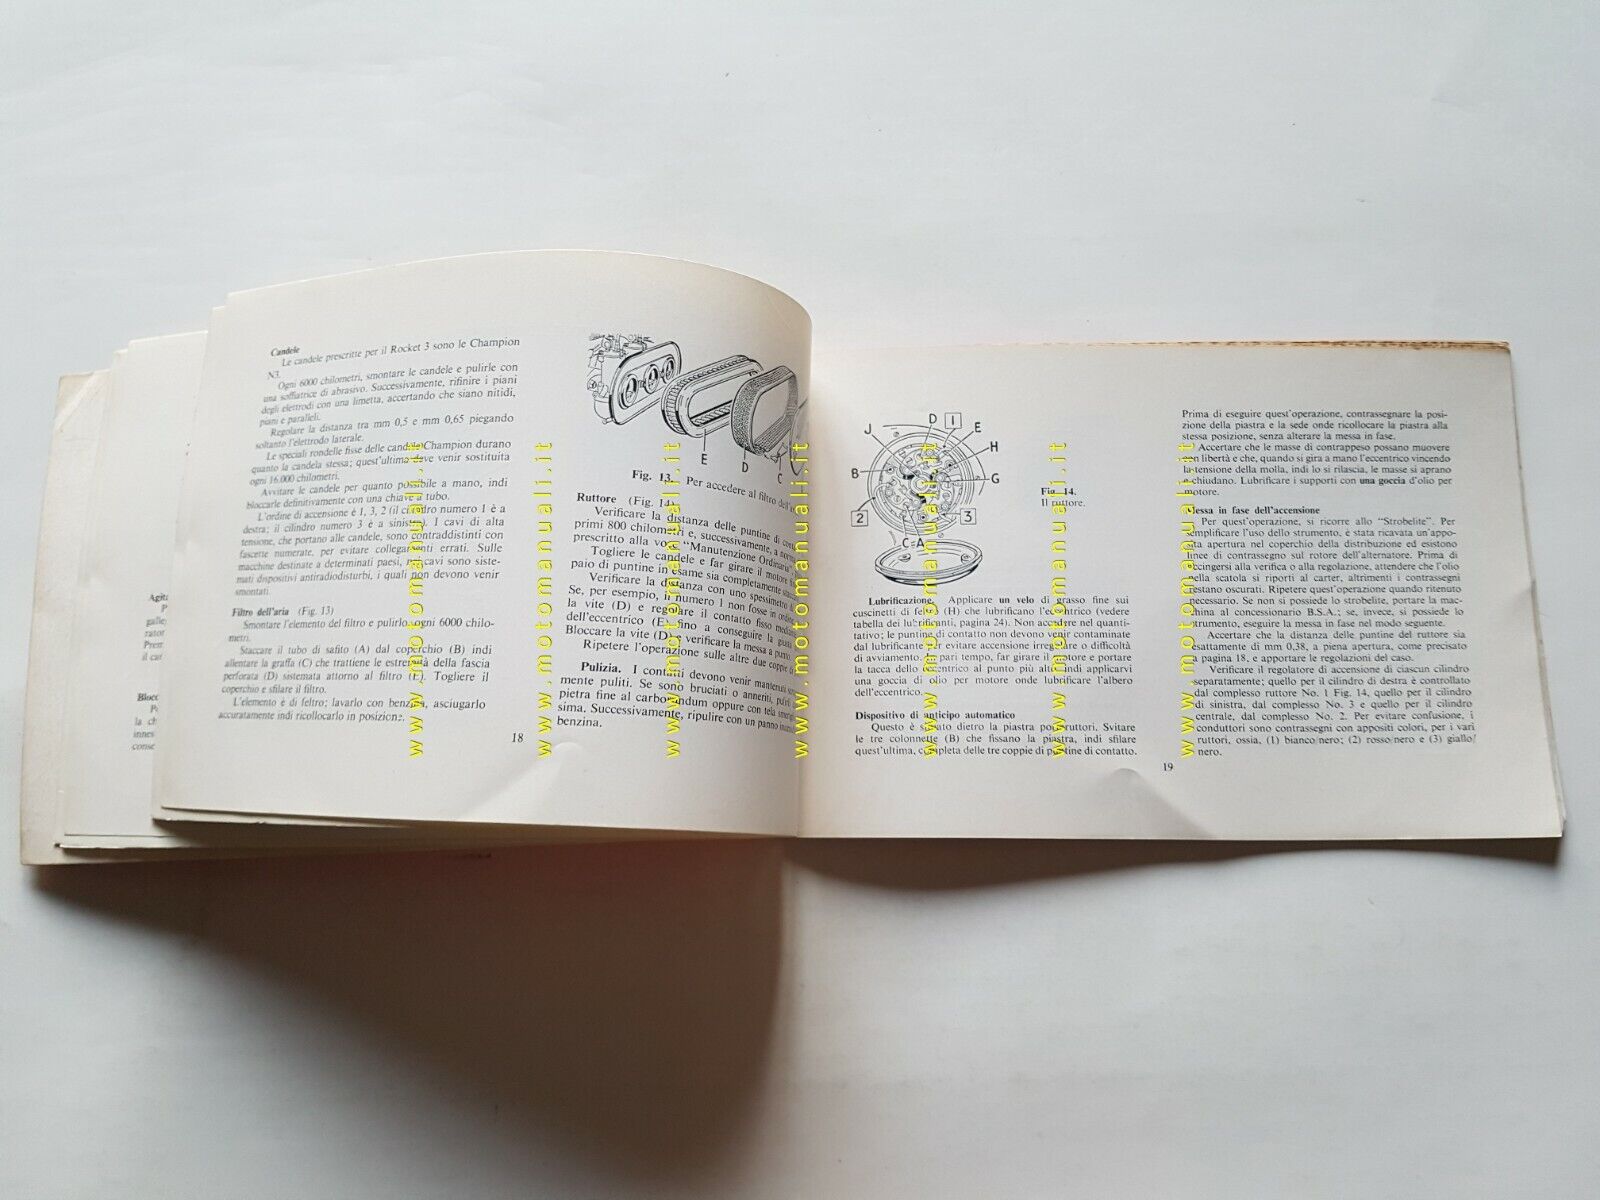 Candele
Le candele prescritte per il Rocket 3 sono le Champion
N3.
Ogni 6000 chilometri, smontare le candele e pulirle con
una soffiatrice di abrasivo. Successivamente, rifinire i piani
degli elettrodi con una limetta, accertando che siano nitidi,
piani e paralleli.
Regolare la distanza tra mm 0,5 e mm 0,65 piegando
soltanto l'elettrodo laterale.
Le speciali rondelle fisse delle candele Champion durano
quanto la candela stessa; quest'ultima deve venir sostituita
ogni 16.000 chilometri.
Avvitare le candele per quanto possibile a mano, indi
bloccarle definitivamente con una chiave a tubo.
L'ordine di accensione è 1, 3, 2 (il cilindro numero 1 è a
destra; il cilindro numero 3 è a sinistra). I cavi di alta
tensione, che portano alle candele, sono contraddistinti con
fascette numerate, per evitare collegamenti errati. Sulle
macchine destinate a determinati paesi, nei cavi sono siste-
mati dispositivi antiradiodisturbi, i quali non devono venir
smontati.
Filtro dell'aria (Fig. 13)
Smontare l'elemento del filtro e pulirlo ogni 6000 chilo-
metri.
Staccare il tubo di safito (A) dal coperchio (B) indi
allentare la graffa (C) che trattiene le estremità della fascia
perforata (D) sistemata attorno al filtro (E). Togliere il
coperchio e sfilare il filtro.
L'elemento è di feltro; lavarlo con benzina, asciugarlo
accuratamente indi ricollocarlo in posizione.
18
E
D
C
Fig. 13. Per accedere al filtro
Ruttore (Fig. 14)
Verificare la distanza delle puntine di
primi 800 chilometri e, successivamente, a
prescritto alla voce "Manutenzione Ordinaria"
Togliere le candele e far girare il motore
paio di puntine in esame sia completamente
Verificare la distanza con uno spessimetro
Se, per esempio, il numero 1 non fosse in
la vite (D) e regolare il contatto fisso
dell'eccentrico (E) fino a conseguire la
Bloccare la vite (D) e verificare la messa a punto
Ripetere l'operazione sulle altre due coppie
Pulizia. I contatti devono venir mantenuti
mente puliti. Se sono bruciati o anneriti, pulirli
pietra fine al carborundum oppure con tela
sima. Successivamente, ripulire con un panno
benzina.
J
D
1
E
H
B
G
2
3
C
A
Fig. 14.
Il ruttore.
Lubrificazione. Applicare un velo di grasso fine sui
cuscinetti di feltro (H) che lubrificano l'eccentrico (vedere
tabella dei lubrificanti, pagina 24). Non accedere nel quanti-
tativo; le puntine di contatto non devono venir contaminate
dal lubrificante per evitare accensione irregolare o difficoltà
di avviamento. In pari tempo, far girare il motore e portare
la tacca dello eccentrico al punto più alto indi applicarvi
una goccia di olio per motore onde lubrificare l'albero
dell'eccentrico.
Dispositivo di anticipo automatico
Questo è situato dietro la piastra porta ruttori. Svitare
le tre colonnette (B) che fissano la piastra, indi sfilare
quest'ultima, completa delle tre coppie di puntine di contatto.
Prima di eseguire quest'operazione, contrassegnare la posi-
zione della piastra e la sede onde ricollocare la piastra alla
stessa posizione, senza alterare la messa in fase.
Accertare che le masse di contrappeso possano muovere
con libertà e che, quando si gira a mano l'eccentrico vincendo
la tensione della molla, indi lo si rilascia, le masse si aprano
e chiudano. Lubrificare i supporti con una goccia d'olio per
motore.
Messa in fase dell'accensione
Per quest'operazione, si ricorre allo "Strobelite". Per
semplificare l'uso dello strumento, è stata ricavata un'appo-
sita apertura nel coperchio della distribuzione ed esistono
linee di contrassegno sul rotore dell'alternatore. Prima di
accingersi alla verifica o alla regolazione, attendere che l'olio
nella scatola si riporti al carter, altrimenti i contrassegni
restano oscurati. Ripetere quest'operazione quando ritenuto
necessario. Se non si possiede lo strobelite, portare la mac-
china al concessionario B.S.A.; se, invece, si possiede lo
strumento, eseguire la messa in fase nel modo seguente.
Accertare che la distanza delle puntine del ruttore sia
esattamente di mm 0,38, a piena apertura, come precisato
a pagina 18, e apportare le regolazioni del caso.
Verificare il regolatore di accensione di ciascun cilindro
separatamente; quello per il cilindro di destra è controllato
dal complesso ruttore No. 1 Fig. 14, quello per il cilindro
di sinistra, dal complesso No. 3 e quello per il cilindro
centrale, dal complesso No. 2. Per evitare confusione, i
conduttori sono contrassegni con appositi colori, per i vari
ruttori, ossia, (1) bianco/nero; (2) rosso/nero e (3) giallo/
nero.
19
Agita
P
galle
rator
Prem
il car
Blocc
Po
la ch
innes
conse
www.motomanuali.it
www.motomanuali.it
www.motomanuali.it
www.motomanuali.it
www.motomanuali.it
www.motomanuali.it
www.motomanuali.it